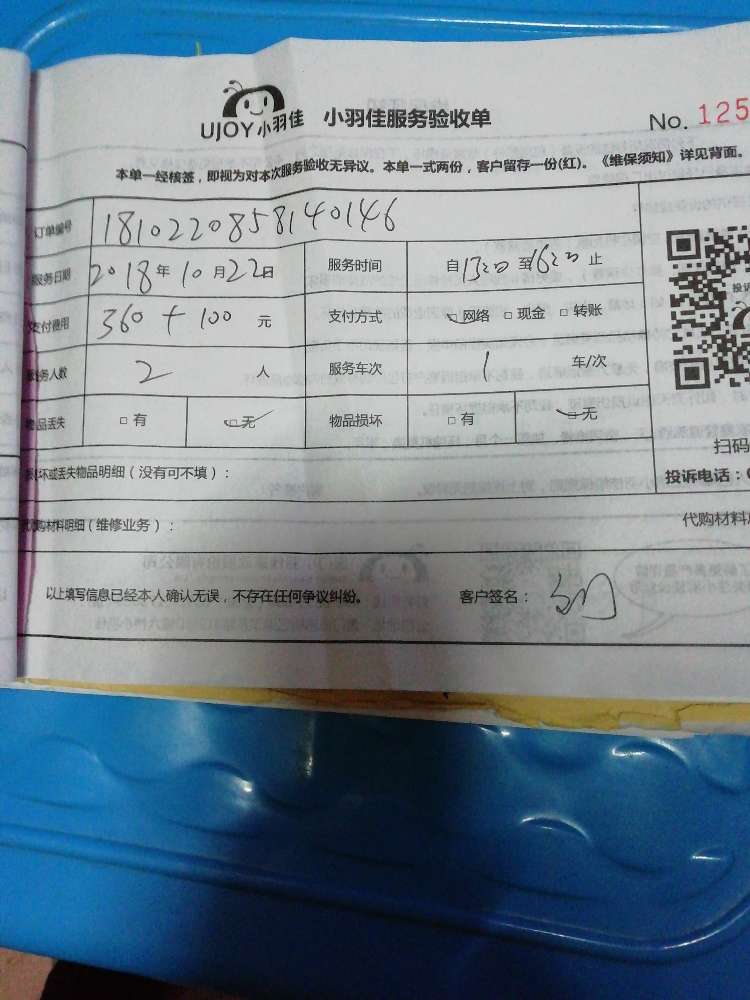 UJOY小羽佳 小羽佳服务验收单 No. 125
本单一经核签，即视为对本次服务验收无异议。本单一式两份，客户留存一份(红)。《维保须知》详见背面。
订单编号 1810220858140146
服务日期 2018年10月22日 服务时间 自1300至1600止
支付费用 360 + 100 元 支付方式 网络 □现金 □转账
服务人数 2 人 服务车次 1 车/次
物品丢失 □有 □无 物品损坏 □有 □无
投诉
扫码
损坏或丢失物品明细（没有可不填）：
投诉电话：
代购材料明细（维修业务）：
代购材料
以上填写信息已经本人确认无误，不存在任何争议纠纷。 客户签名：